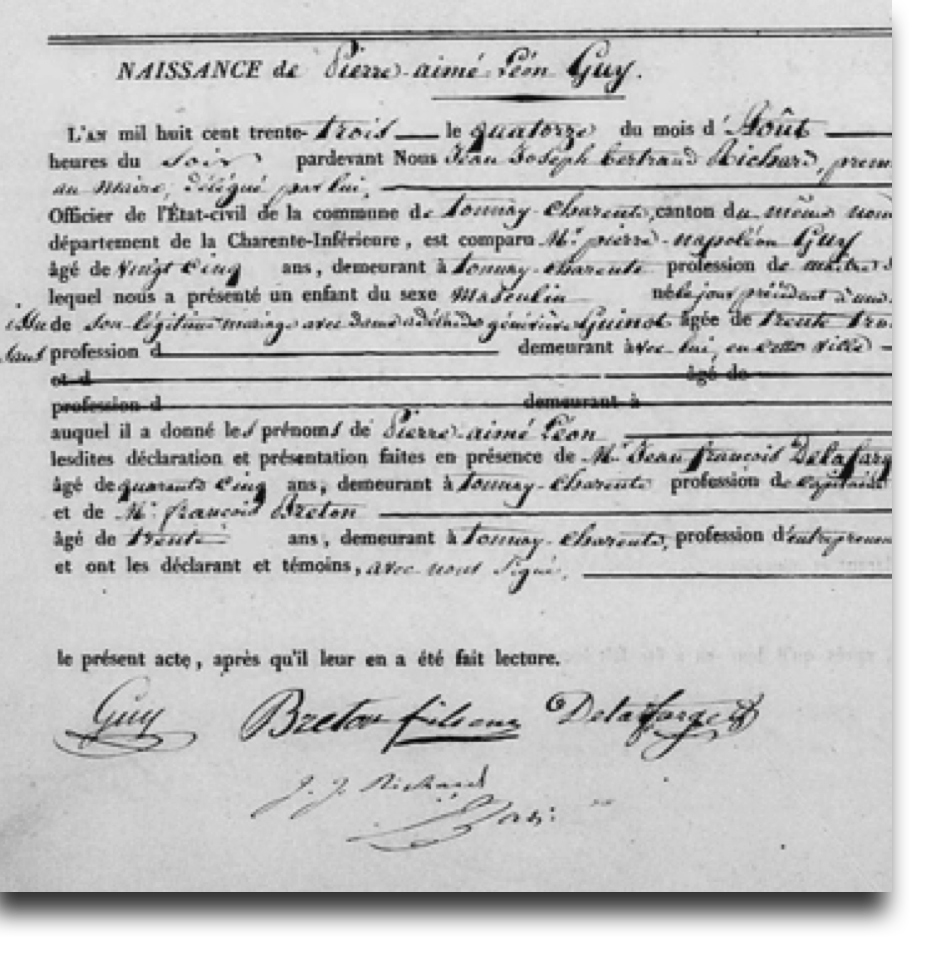 NAISSANCE de Pierre-aimé-Léon Guy.
L'AN mil huit cent trente-trois le quatorze du mois d'Août
heures du soir pardevant Nous Jean Joseph bertrand Richard, prem
au Maire, délégué par lui,
Officier de l'État-civil de la commune de Tonnay-Charente, canton du même nom
département de la Charente-Inférieure, est comparu Mr. pierre-napoléon Guy
âgé de vingt cinq ans, demeurant à Tonnay-charente profession de
lequel nous a présenté un enfant du sexe Masculin né le jour précédent à une
issu de son légitime mariage avec dame adélaïde géneviève Guinot âgée de trente tro
sans profession d demeurant avec lui, en cette ville
et d âgé de
profession d demeurant à
auquel il a donné les prénoms de Pierre-aimé Léon
lesdites déclaration et présentation faites en présence de Mr. Jean françois Delafarg
âgé de quarante cinq ans, demeurant à Tonnay-Charente profession de capitaine
et de Mr. françois Breton
âgé de trente ans, demeurant à Tonnay-Charente, profession d'entrepreneur
et ont les déclarant et témoins, avec nous signé,
le présent acte, après qu'il leur en a été fait lecture.
Guy Breton fils Delafarge
J. J. Richard